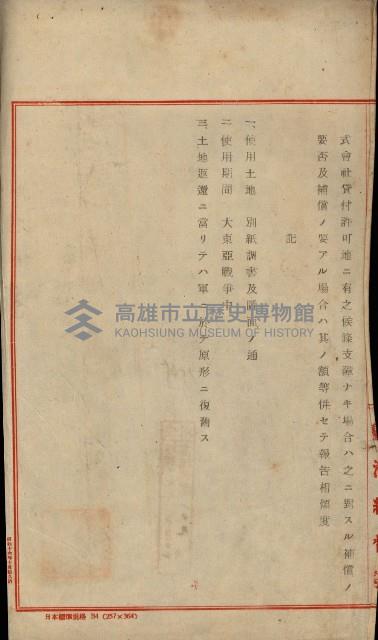 式會社貸付許可地ニ有之候條支障ナキ場合ハ之ニ對スル補償ノ
要否及補償ノ要アル場合ハ其ノ額等併セテ報告相煩度
記
一、使用土地 別紙調書及圖面ノ通
二、使用期間 大東亞戰爭中
三、土地返還ニ當リテハ軍ニ於テ原形ニ復舊ス
高雄市立歷史博物館
KAOHSIUNG MUSEUM OF HISTORY
日本標準規格 B4 (257×364)